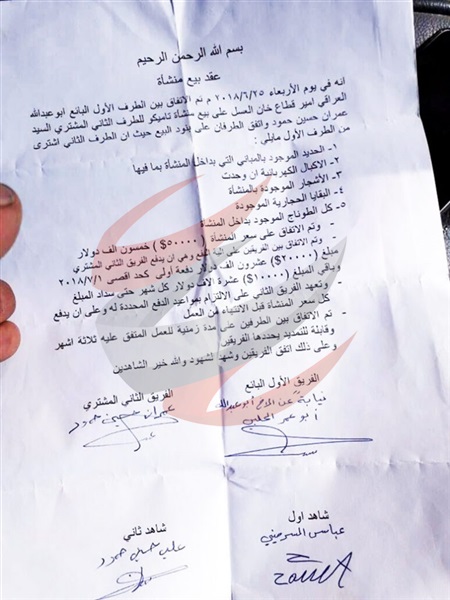 بسم الله الرحمن الرحيم
عقد بيع منشأة
انه في يوم الأربعاء ٢٠١٨/٦/٢٥ م تم الاتفاق بين الطرف الأول البائع ابوعبدالله
العراقي امير قطاع خان العسل على بيع منشأة تاميكو للطرف الثاني المشتري السيد
عمران حسين حمود واتفق الطرفان على بنود البيع حيث ان الطرف الثاني اشترى
من الطرف الأول مايلي:
١- الحديد الموجود بالمباني التي بداخل المنشأة بما فيها
٢- الاكبال الكهربائية ان وجدت
٣- الأشجار الموجودة بالمنشأة
٤- البقايا الحجارية الموجودة
٥- كل الطوناج الموجود بداخل المنشأة
- وتم الاتفاق على سعر المنشأة (٥٠٠٠٠$) خمسون الف دولار
- وتم الاتفاق بين الفريقين على الية الدفع وهي ان يدفع الفريق الثاني المشتري
مبلغ (٢٠٠٠٠$) عشرون الف دولار دفعة أولى كحد اقصى ٢٠١٨/٧/١
وباقي المبلغ (١٠٠٠٠$) عشرة الاف دولار كل شهر حتى سداد المبلغ
- وتعهد الفريق الثاني على الالتزام بمواعيد الدفع المحددة له وعلى ان يدفع
كل سعر المنشأة قبل الانتهاء من العمل
- تم الاتفاق بين الطرفين على مدة زمنية للعمل المتفق عليه ثلاثة اشهر
وقابلة للتمديد يحددها الفريقين
وعلى ذلك اتفق الفريقين وشهد الشهود والله خير الشاهدين
الفريق الأول البائع
الفريق الثاني المشتري
نيابة عن الأخ أبو عبدالله
عمران حسين حمود
أبو عمر الحلبي
شاهد اول
شاهد ثاني
عباس السرميني
علي حسين حمود